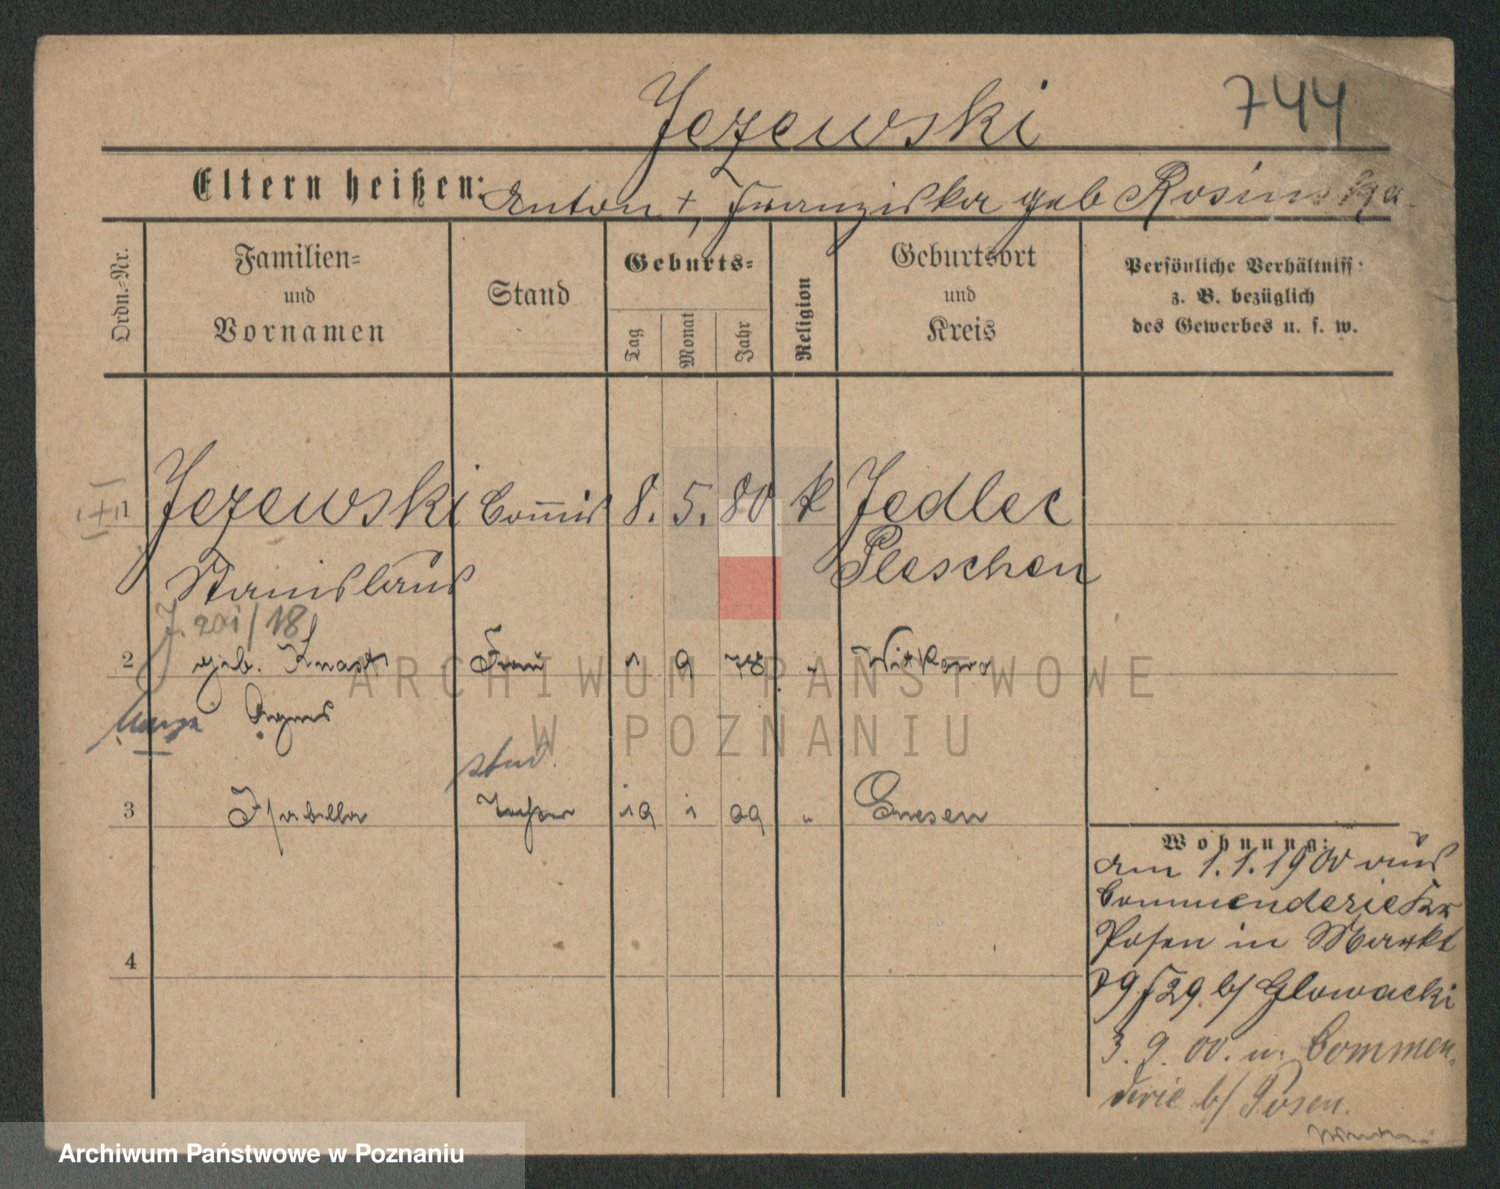 Jezewski
744
Eltern heißen: Anton +, Franziska geb Rosinska
Ordn.-Nr.
Familien-
und
Vornamen
Stand
Geburts-
Tag
Monat
Jahr
Religion
Geburtsort
und
Kreis
Persönliche Verhältniss
z. B. bezüglich
des Gewerbes u. s. w.
1 Jezewski Commis 8. 5. 80 k Jedlec
Stanislaus Pleschen
2 geb. Knast Frau 1 9 78 " Witkowo
Agnes
stud.
3 Isabella Tochter 19 1 99 " Gnesen
4
Wohnung:
am 1.1.1900 aus
Commenderie
Posen in Markt
b/ Glowacki
3. 9. 00. n. Commen-
derie b/ Posen.
ARCHIWUM PAŃSTWOWE
W POZNANIU
Archiwum Państwowe w Poznaniu